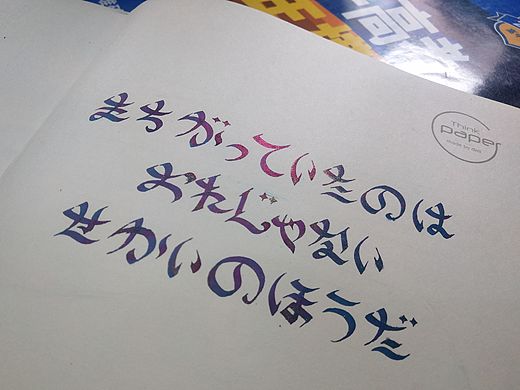 まちがっていたのは
おれじゃない
せかいのほうだ
Think
paper
made by deli
高